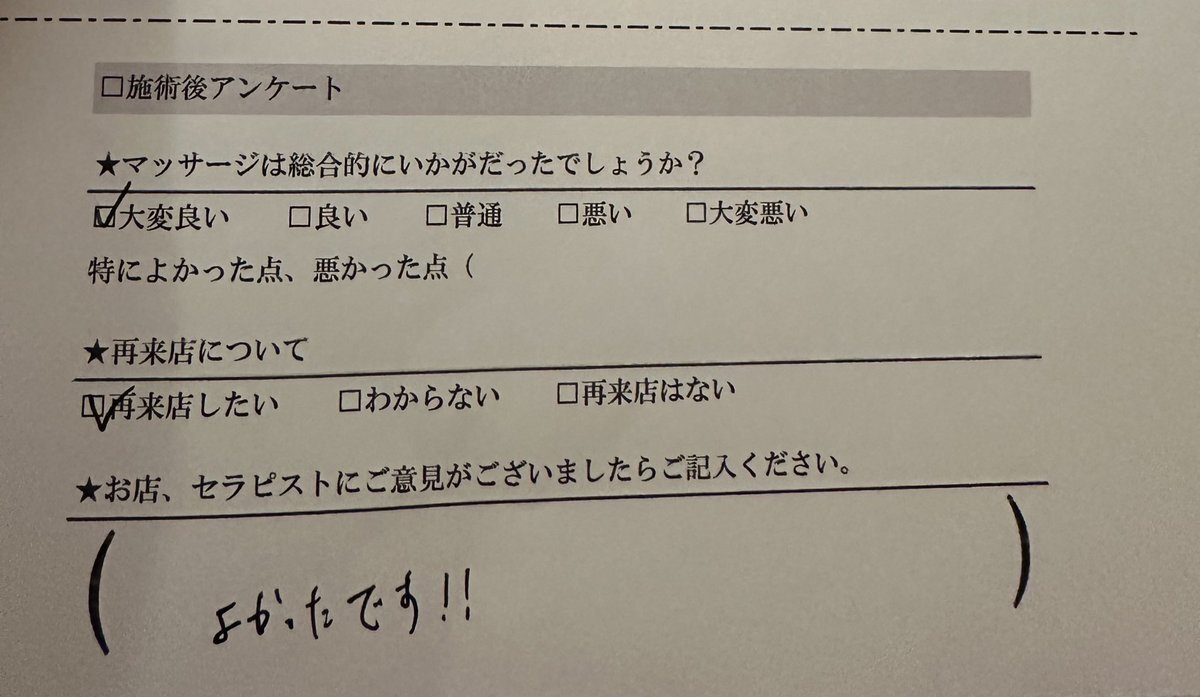 □施術後アンケート
★マッサージは総合的にいかがだったでしょうか？
☑大変良い □良い □普通 □悪い □大変悪い
特によかった点、悪かった点（
★再来店について
☑再来店したい □わからない □再来店はない
★お店、セラピストにご意見がございましたらご記入ください。
（ よかったです!! ）